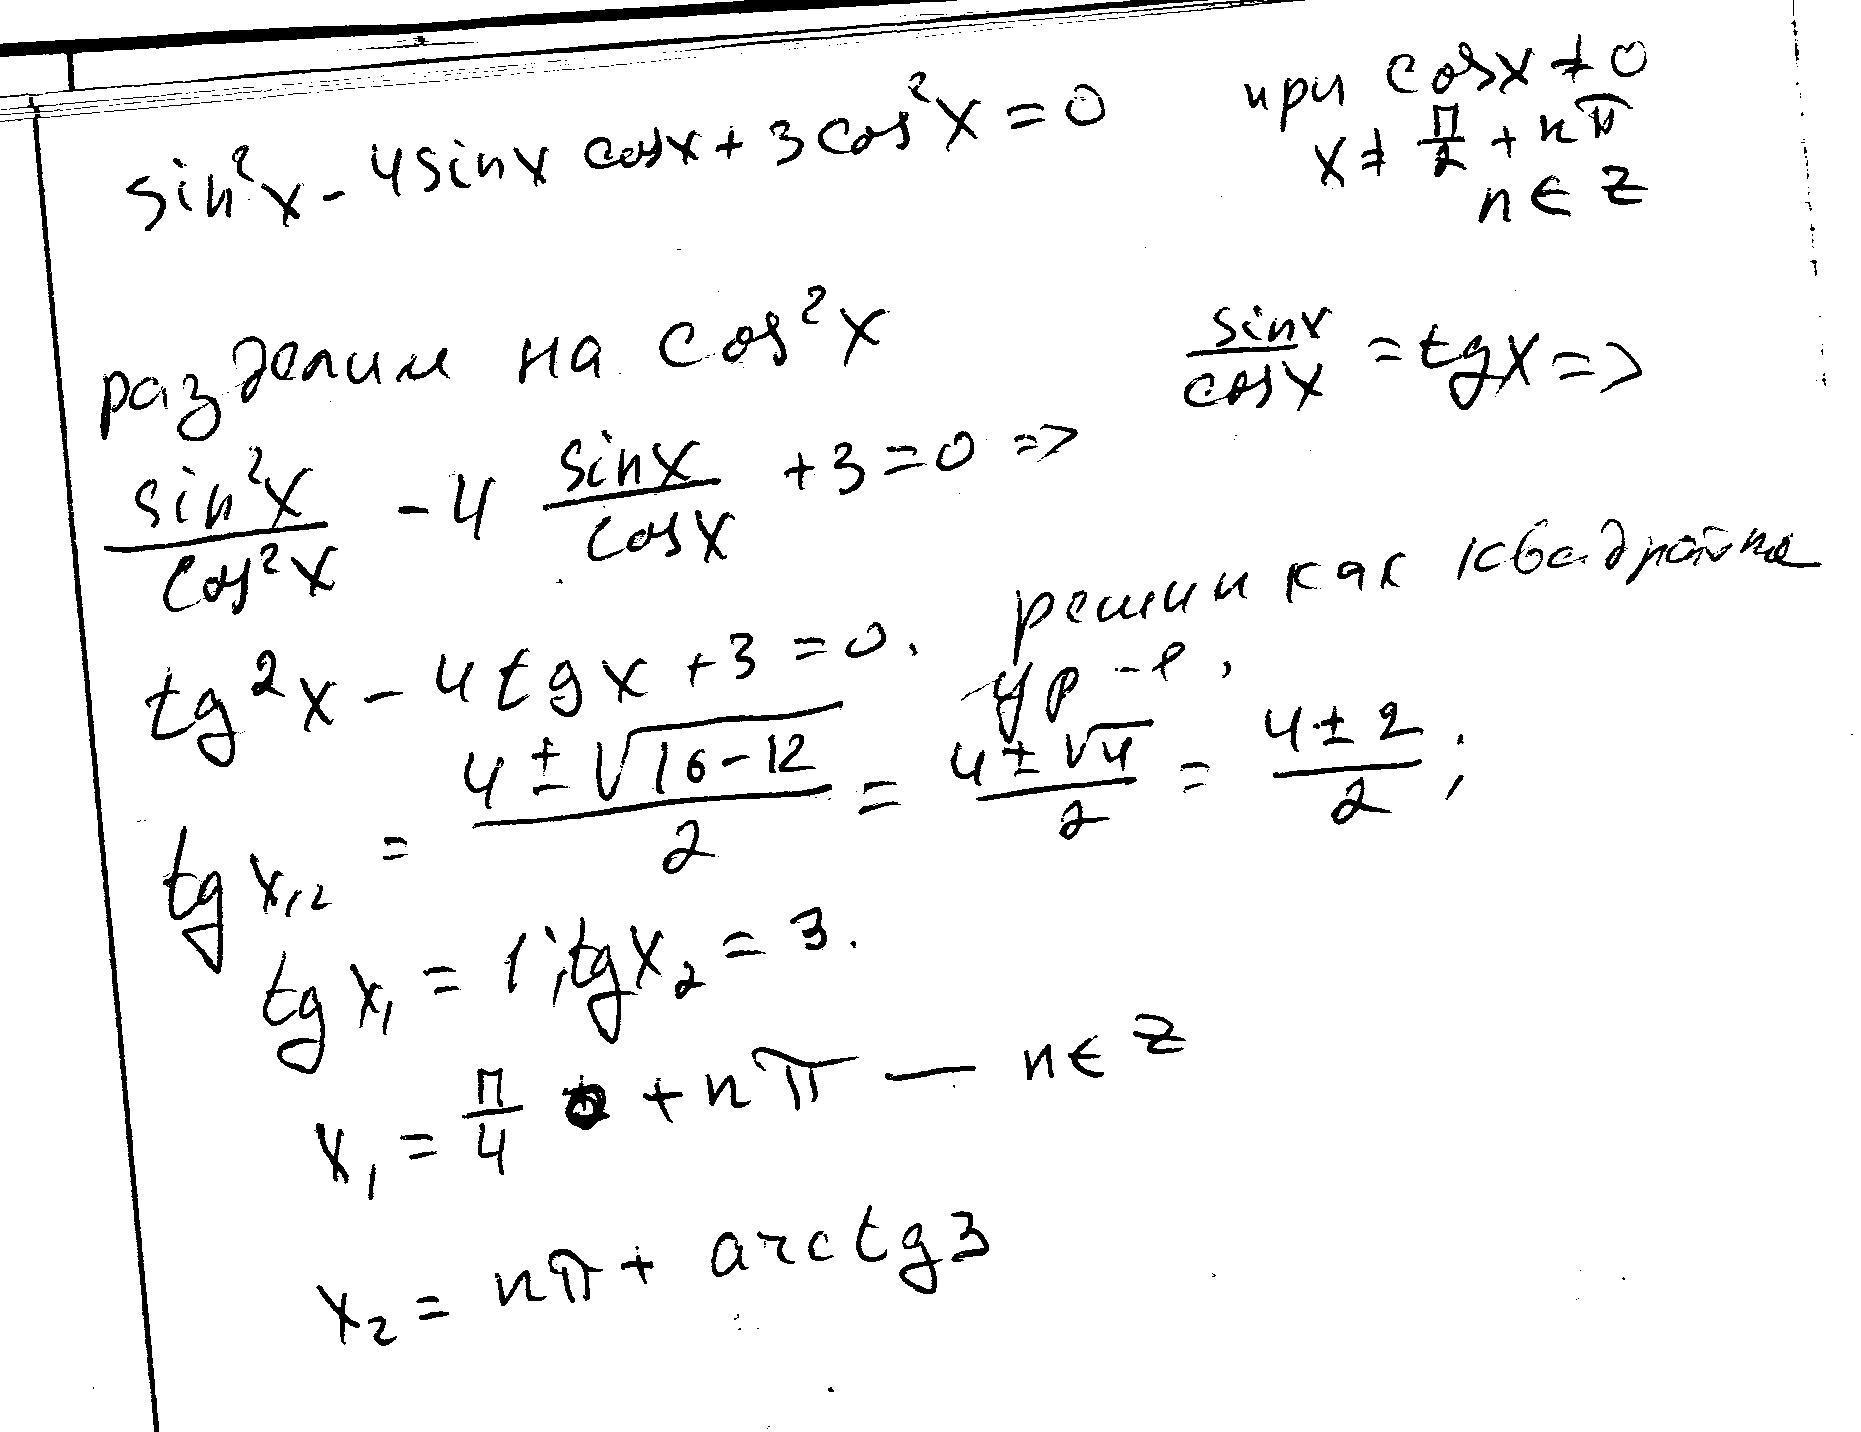 sin²x - 4sinx cosx + 3cos²x = 0
при cosx ≠ 0
x ≠ π/2 + nπ
n ∈ Z
разделим на cos²x
sinx/cosx = tgx =>
sin²x/cos²x - 4 sinx/cosx + 3 = 0 =>
tg²x - 4tgx + 3 = 0.
решим как
ур-е,
tgx₁,₂ = (4 ± √(16-12))/2 = (4 ± √4)/2 = (4 ± 2)/2;
tgx₁ = 1; tgx₂ = 3.
x₁ = π/4 + nπ — n ∈ Z
x₂ = nπ + arctg3